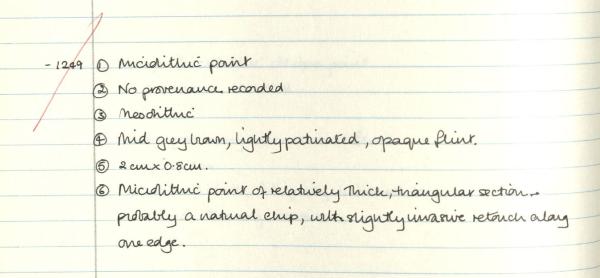 - 1249 ① Microlithic point
② No provenance recorded
③ Neolithic
④ Mid grey brown, lightly patinated, opaque flint.
⑤ 2cm x 0.8cm.
⑥ Microlithic point of relatively thick, triangular section -
probably a natural chip, with slightly invasive retouch along
one edge.